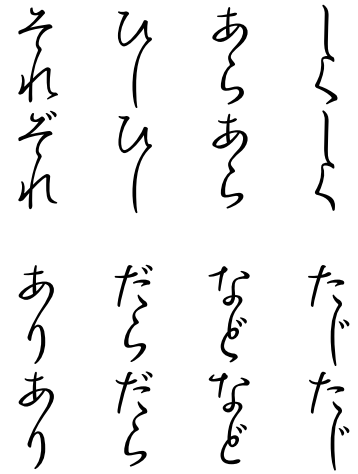 しくしく
あらあら
ひーひー
それぞれ
たじたじ
などなど
だらだら
ありあり